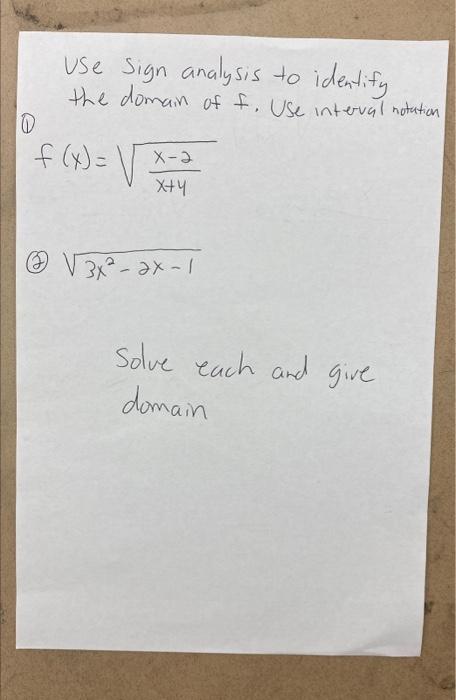 Use Sign analysis to identify
the domain of f. Use interval notation
①
f(x) = √((x-2)/(x+4))
② √(3x² - 2x - 1)
Solve each and give
domain